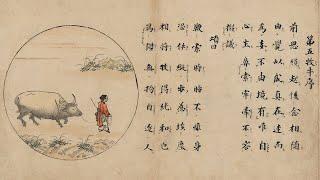 第五牧牛序
前思纔起後念相隨
由覺以成真在迷而
為妄不由境有唯自
心生鼻索牢牽不容
擬議
頌曰
鞭索時時不離身
恐伊縱步惹埃塵
相將牧得純和也
羈鎖無拘自逐人